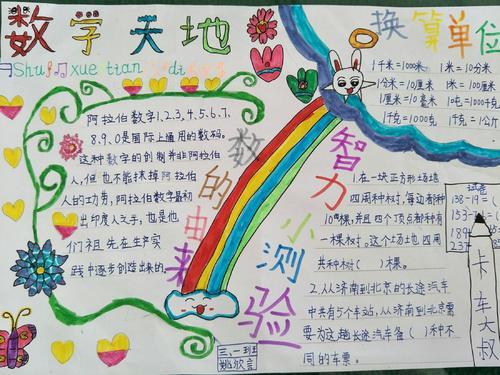 数学天地
Shu xue tian di
阿拉伯数字1、2、3、4、5、6、7、
8、9、0是国际上通用的数码。
这种数字的创制并非阿拉伯
人,但也不能抹掉阿拉伯
人的功劳,阿拉伯数字最初
出印度人之手,也是他
们祖先在生产实
践中逐步创造出来的。
数的由来
换算单位
1千米=1000米 1米=10分米
1分米=10厘米 1米=100厘米
1厘米=10毫米 1吨=1000千克
1千克=1000克 1千克=1公斤
智力小测验
1.在一块正方形场地
四周种树,每边都种
10棵,并且四个顶点都种有
一棵树。这个场地四周
共种树( )棵。
2.从济南到北京的长途汽车
中共有5个车站,从济南到北京需
要为这趟长途汽车备( )种不
同的车票。
138-19=(
153-
189
237-
卡车大叔
三、一班
姚欣言